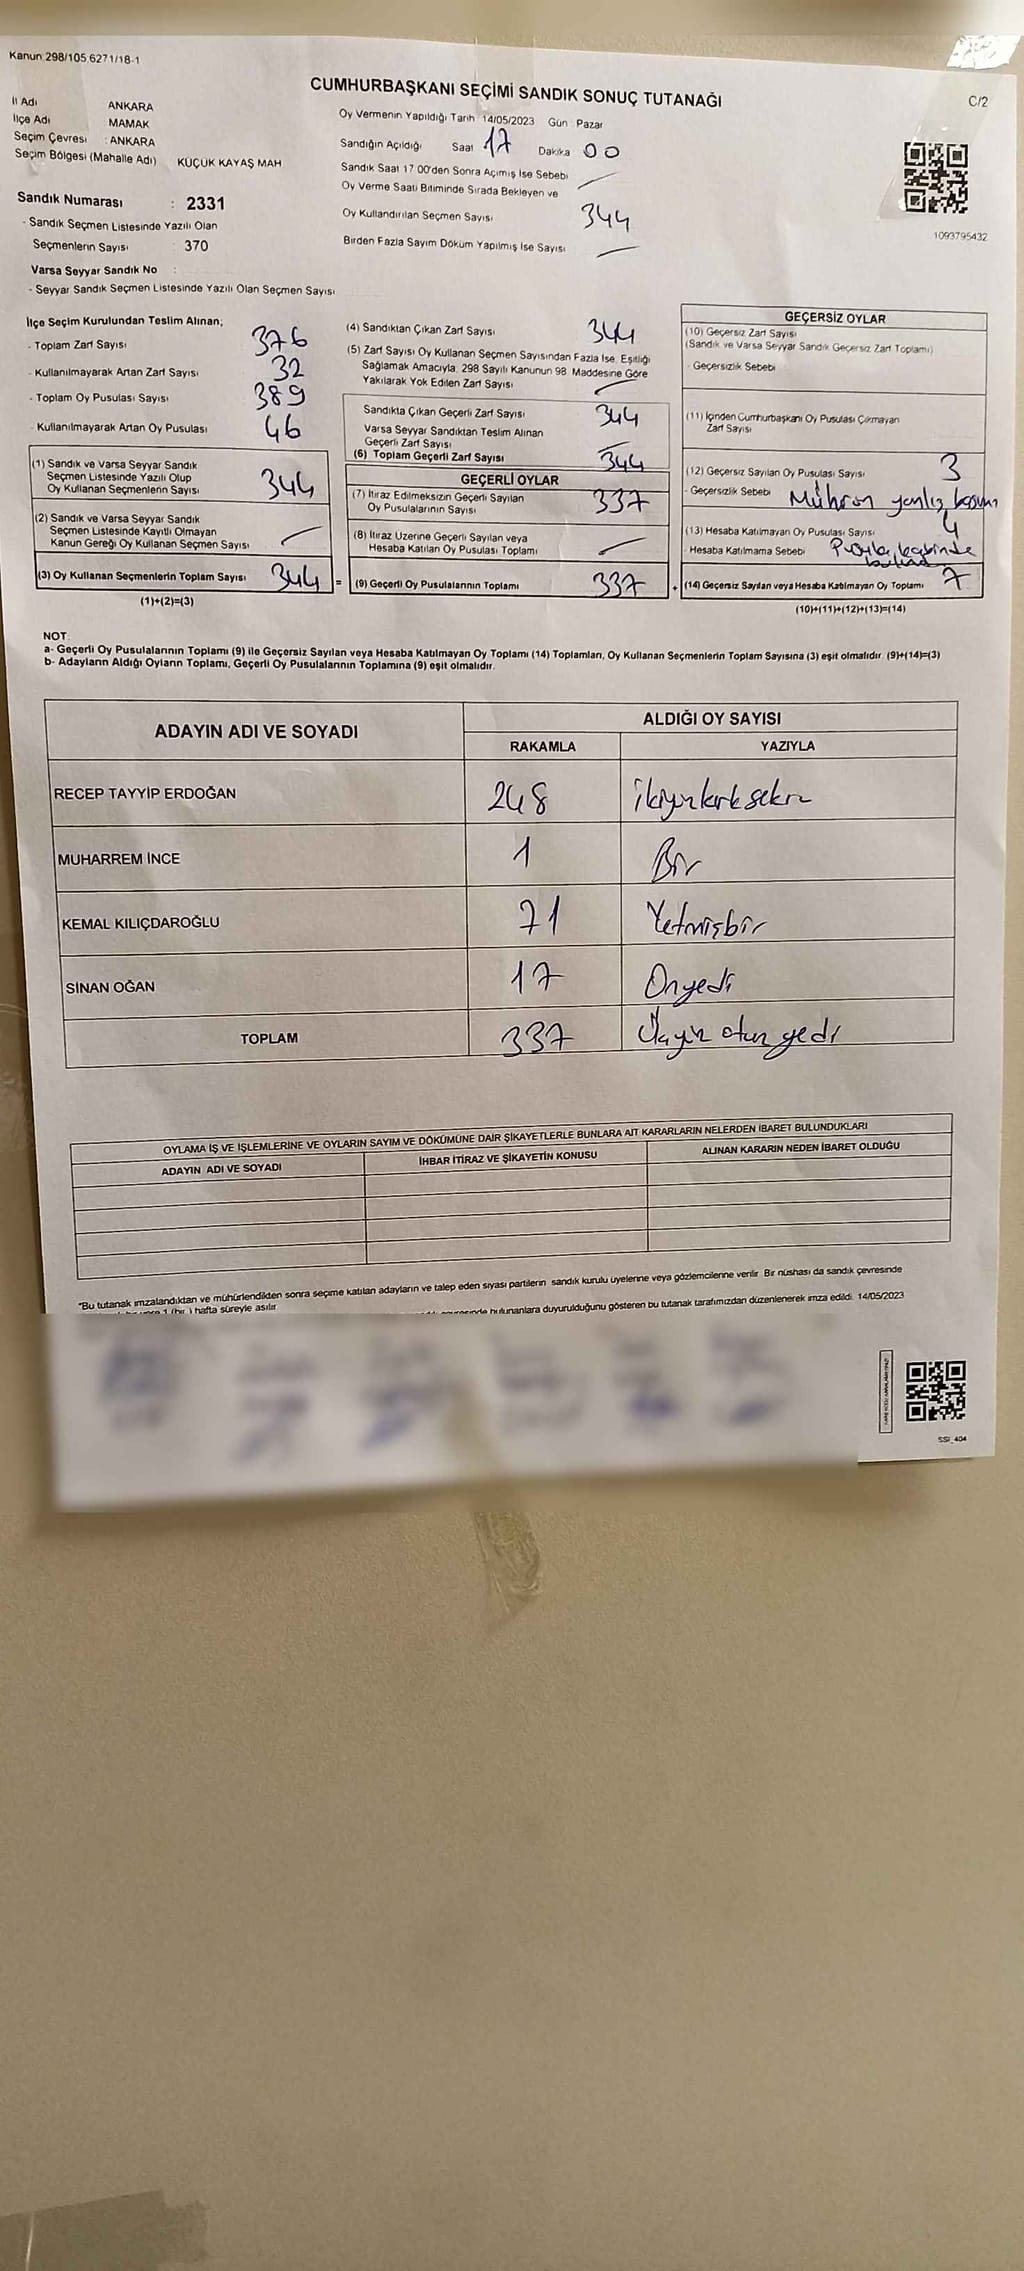 Kanun 298/105 6271/18-1
CUMHURBAŞKANI SEÇİMİ SANDIK SONUÇ TUTANAĞI
C/2
İl Adı ANKARA
İlçe Adı MAMAK
Seçim Çevresi : ANKARA
Seçim Bölgesi (Mahalle Adı) KÜÇÜK KAYAŞ MAH
Sandık Numarası : 2331
- Sandık Seçmen Listesinde Yazılı Olan
Seçmenlerin Sayısı : 370
Varsa Seyyar Sandık No :
- Seyyar Sandık Seçmen Listesinde Yazılı Olan Seçmen Sayısı
Oy Vermenin Yapıldığı Tarih 14/05/2023 Gün Pazar
Sandığın Açıldığı Saat 17 Dakika 00
Sandık Saat 17 00'den Sonra Açımış İse Sebebi
Oy Verme Saati Bitiminde Sırada Bekleyen ve
Oy Kullandırılan Seçmen Sayısı 344
Birden Fazla Sayım Döküm Yapılmış İse Sayısı
1093795432
İlçe Seçim Kurulundan Teslim Alınan;
- Toplam Zarf Sayısı 376
- Kullanılmayarak Artan Zarf Sayısı 32
- Toplam Oy Pusulası Sayısı 389
- Kullanılmayarak Artan Oy Pusulası 46
(1) Sandık ve Varsa Seyyar Sandık
Seçmen Listesinde Yazılı Olup
Oy Kullanan Seçmenlerin Sayısı 344
(2) Sandık ve Varsa Seyyar Sandık
Seçmen Listesinde Kayıtlı Olmayan
Kanun Gereği Oy Kullanan Seçmen Sayısı
(3) Oy Kullanan Seçmenlerin Toplam Sayısı 344 =
(1)+(2)=(3)
(4) Sandıktan Çıkan Zarf Sayısı 344
(5) Zarf Sayısı Oy Kullanan Seçmen Sayısından Fazla İse, Eşitliği
Sağlamak Amacıyla, 298 Sayılı Kanunun 98. Maddesine Göre
Yakılarak Yok Edilen Zarf Sayısı
Sandıkta Çıkan Geçerli Zarf Sayısı 344
Varsa Seyyar Sandıktan Teslim Alınan
Geçerli Zarf Sayısı
(6) Toplam Geçerli Zarf Sayısı 344
GEÇERLİ OYLAR
(7) İtiraz Edilmeksizin Geçerli Sayılan
Oy Pusulalarının Sayısı 337
(8) İtiraz Üzerine Geçerli Sayılan veya
Hesaba Katılan Oy Pusulası Toplamı
(9) Geçerli Oy Pusulalarının Toplamı 337 +
GEÇERSİZ OYLAR
(10) Geçersiz Zarf Sayısı
(Sandık ve Varsa Seyyar Sandık Geçersiz Zarf Toplamı)
- Geçersizlik Sebebi
(11) İçinden Cumhurbaşkanı Oy Pusulası Çıkmayan
Zarf Sayısı
(12) Geçersiz Sayılan Oy Pusulası Sayısı 3
- Geçersizlik Sebebi Mührün yanlız
(13) Hesaba Katılmayan Oy Pusulası Sayısı 4
- Hesaba Katılmama Sebebi
(14) Geçersiz Sayılan veya Hesaba Katılmayan Oy Toplamı 7
(10)+(11)+(12)+(13)=(14)
NOT
a- Geçerli Oy Pusulalarının Toplamı (9) ile Geçersiz Sayılan veya Hesaba Katılmayan Oy Toplamı (14) Toplamları, Oy Kullanan Seçmenlerin Toplam Sayısına (3) eşit olmalıdır. (9)+(14)=(3)
b- Adayların Aldığı Oyların Toplamı, Geçerli Oy Pusulalarının Toplamına (9) eşit olmalıdır.
ADAYIN ADI VE SOYADI
ALDIĞI OY SAYISI
RAKAMLA YAZIYLA
RECEP TAYYİP ERDOĞAN 248 ikiyüzkırksekiz
MUHARREM İNCE 1 Bir
KEMAL KILIÇDAROĞLU 71 Yetmişbir
SİNAN OĞAN 17 Onyedi
TOPLAM 337 Üçyüz otuz yedi
OYLAMA İŞ VE İŞLEMLERİNE VE OYLARIN SAYIM VE DÖKÜMÜNE DAİR ŞİKAYETLERLE BUNLARA AİT KARARLARIN NELERDEN İBARET BULUNDUKLARI
ADAYIN ADI VE SOYADI İHBAR İTİRAZ VE ŞİKAYETİN KONUSU ALINAN KARARIN NEDEN İBARET OLDUĞU
*Bu tutanak imzalandıktan ve mühürlendikten sonra seçime katılan adayların ve talep eden siyasi partilerin sandık kurulu üyelerine veya gözlemcilerine verilir. Bir nüshası da sandık çevresinde
1 (bir ) hafta süreyle asılır. bulunanlara duyurulduğunu gösteren bu tutanak tarafımızdan düzenlenerek imza edildi. 14/05/2023
SSI_404